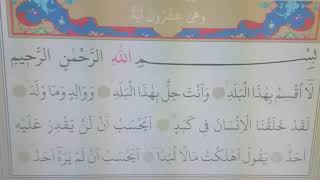 وَهِيَ عِشْرُونَ اٰيَةً
بِسْمِ اللّٰهِ الرَّحْمٰنِ الرَّحٖيمِ
لَٓا اُقْسِمُ بِهٰذَا الْبَلَدِۙ وَاَنْتَ حِلٌّ بِهٰذَا الْبَلَدِۙ وَوَالِدٍ وَمَا وَلَدَۙ
لَقَدْ خَلَقْنَا الْاِنْسَانَ فٖي كَبَدٍۜ اَيَحْسَبُ اَنْ لَنْ يَقْدِرَ عَلَيْهِ
اَحَدٌۢ يَقُولُ اَهْلَكْتُ مَالًا لُبَدًاۜ اَيَحْسَبُ اَنْ لَمْ يَرَهُٓ اَحَدٌۜ